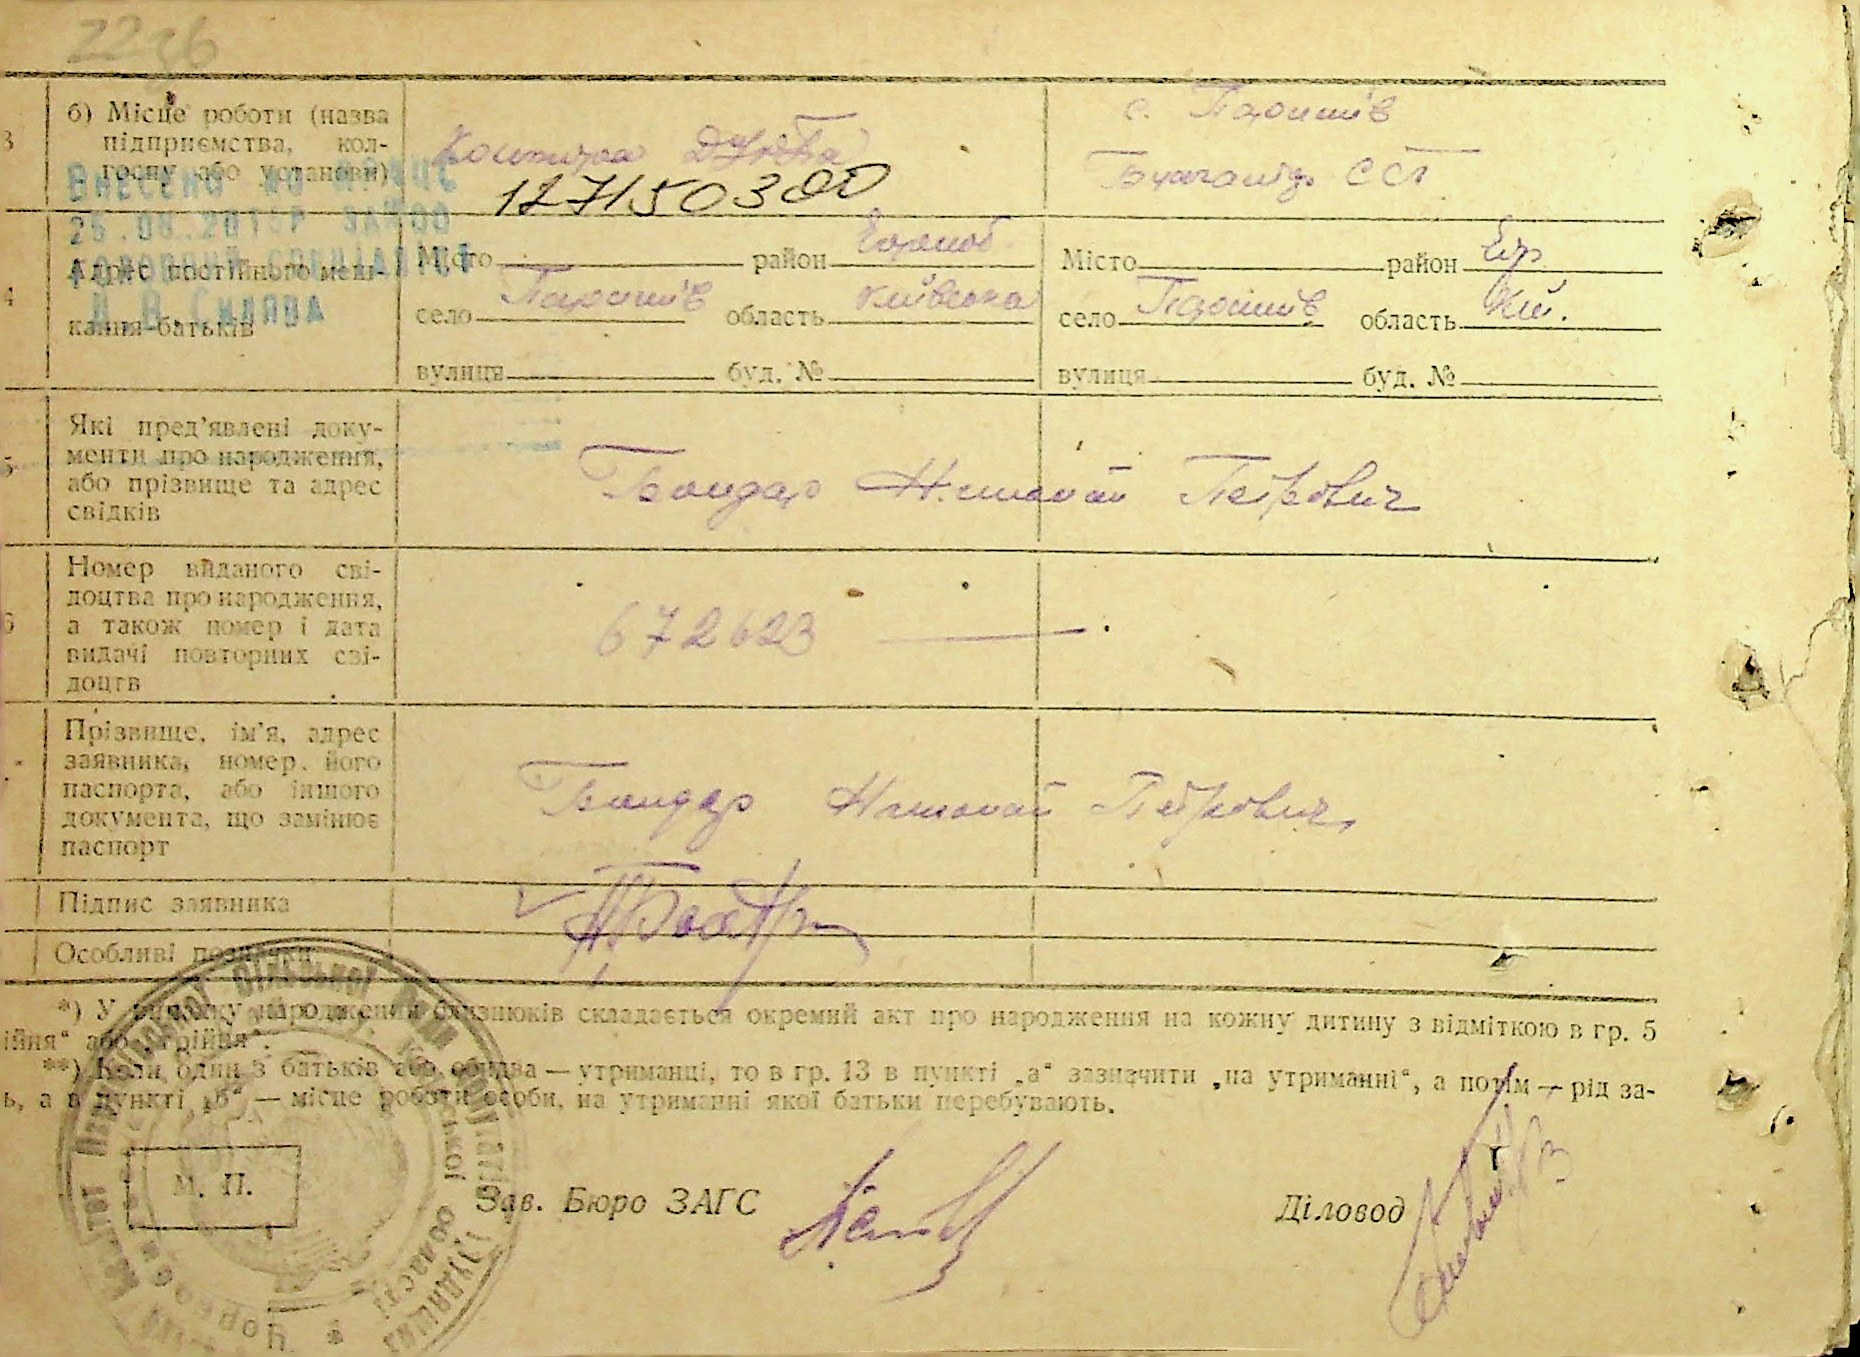 2236
3
б) Місце роботи (назва
підприємства, кол-
госпу або установи)
Контора
12715030
с. Паришів
ССТ
ВНЕСЕНО ДО
26.08.201
4
Адрес постійного меш-
кання батьків
Місто район
село Паришів область Київська
вулиця буд. №
Місто район Чор
село Паришів область Киї.
вулиця буд. №
5
Які пред'явлені доку-
менти про народження,
або прізвище та адрес
свідків
Бондар Николай Петрович
6
Номер виданого сві-
доцтва про народження,
а також номер і дата
видачі повторних сві-
доцтв
672623
Прізвище, ім'я, адрес
заявника, номер його
паспорта, або іншого
документа, що замінює
паспорт
Бондар Николай Петрович
Підпис заявника
Особливі позначки
*) У випадку народження близнюків складається окремий акт про народження на кожну дитину з відміткою в гр. 5
ійня“ або „трійня“.
**) Коли один з батьків або обидва — утриманці, то в гр. 13 в пункті „а“ зазначити „на утриманні“, а потім — рід за-
ь, а в пункті „б“ — місце роботи особи, на утриманні якої батьки перебувають.
М. П.
Зав. Бюро ЗАГС
Діловод